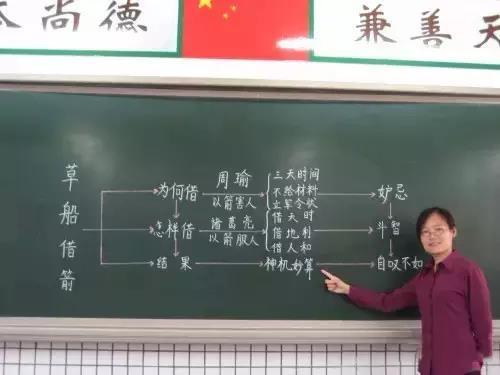 尚德
兼善天
草船借箭
为何借
周瑜
以箭害人
三天时间
不给材料
立军令状
妒忌
怎样借
诸葛亮
以箭服人
借天时
借地利
借人和
斗智
结果
神机妙算
自叹不如